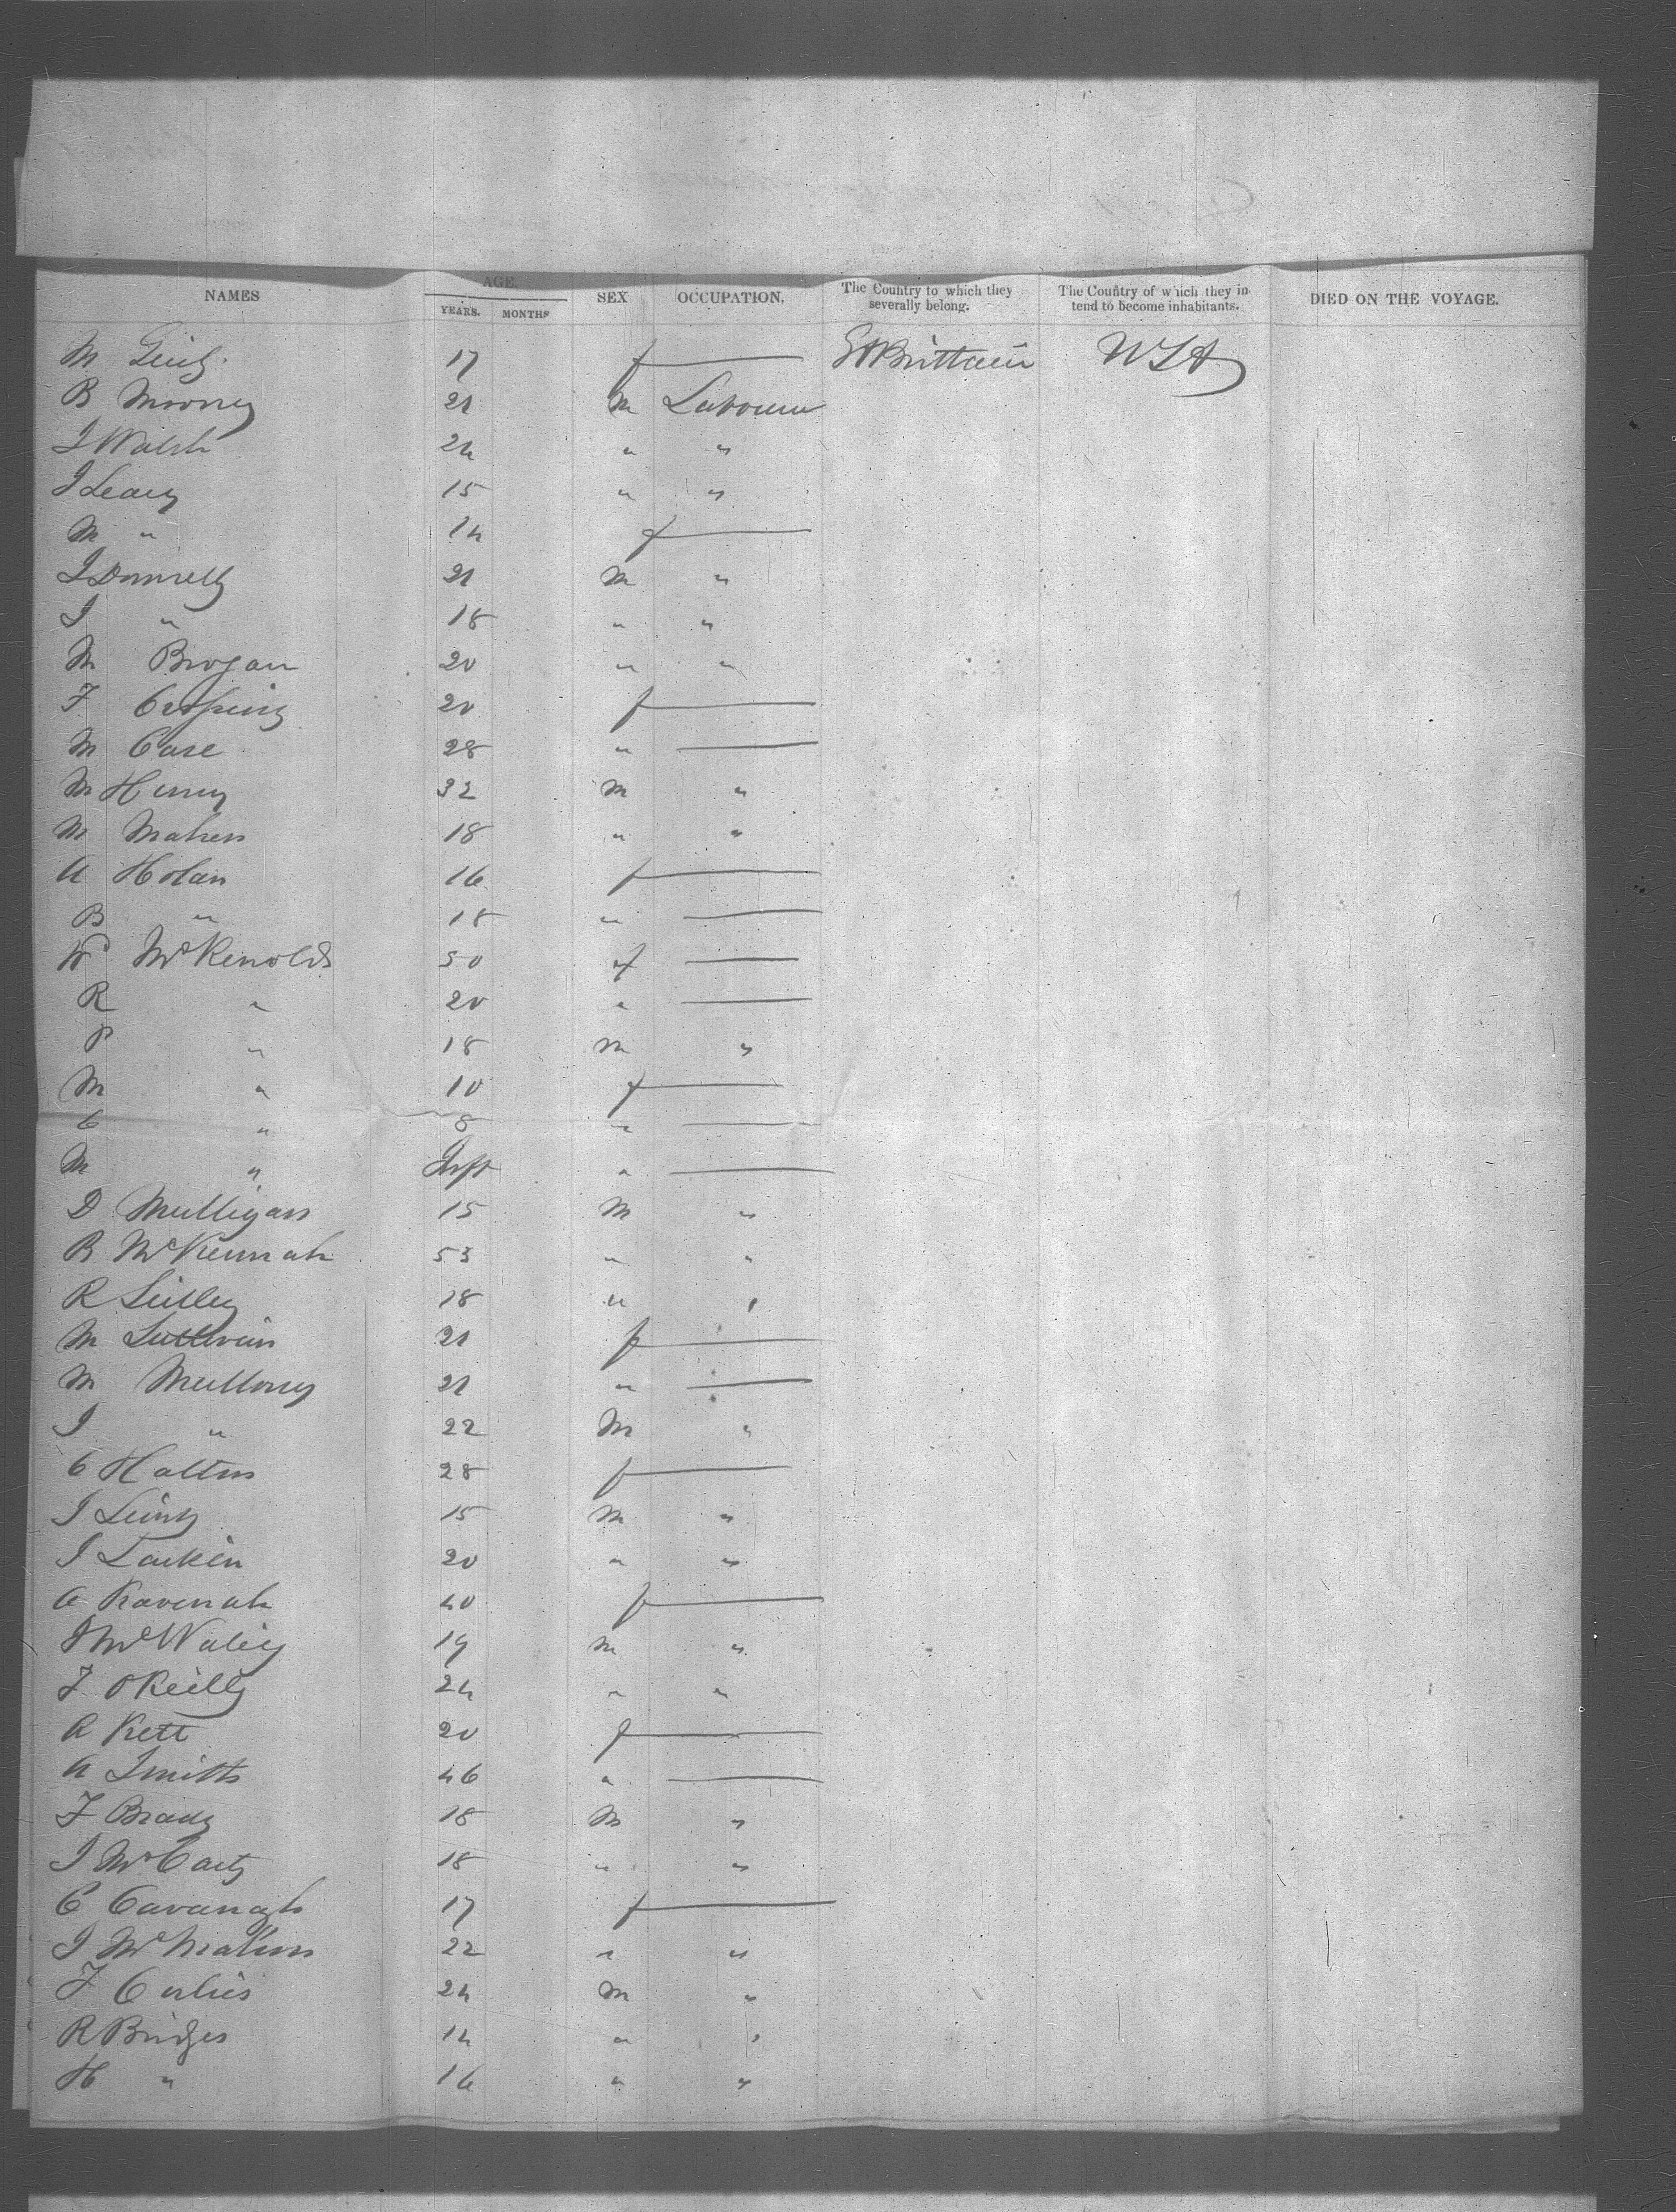 NAMES AGE. YEARS. MONTHS SEX OCCUPATION. The Country to which they severally belong. The Country of which they intend to become inhabitants. DIED ON THE VOYAGE.
M 17 f — Gt Brittain USA
B Mooney 21 m Labourer
J Walsh 24 " "
J Leary 15 " "
M " 14 f —
J Donnelly 21 m "
J " 18 " "
M Brogan 20 " "
F 20 f —
M Case 28 " —
M Henry 32 m "
M Maher 18 " "
A Holan 16 f —
B " 18 " —
W McRenolds 50 f —
R " 20 " —
P " 18 m "
M " 10 f —
C " 8 " —
M " Inft " —
D Mulligan 15 m "
B McKennah 53 " "
R 18 " "
M Sullivan 21 f —
M Mullony 21 " —
J " 22 m "
C Halton 28 f —
J 15 m "
J Larkin 20 " "
C Kavenah 40 f —
J 19 m "
F OReilly 24 " "
A Kett 20 f —
A Smith 46 " —
F Brady 18 m "
J McCarty 18 " "
C Cavanagh 17 f —
J McMahon 22 " "
F 24 m "
R Bridges 14 " "
H " 16 " "